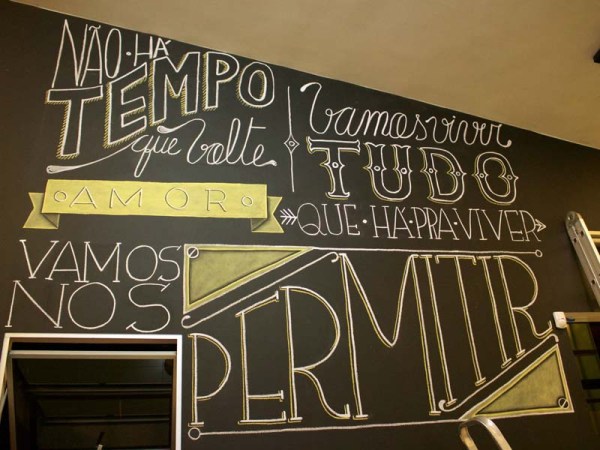 NÃO · HÁ
TEMPO
que volte
AMOR
Vamos viver
TUDO
QUE · HÁ · PRA · VIVER
VAMOS
NOS
PERMITIR